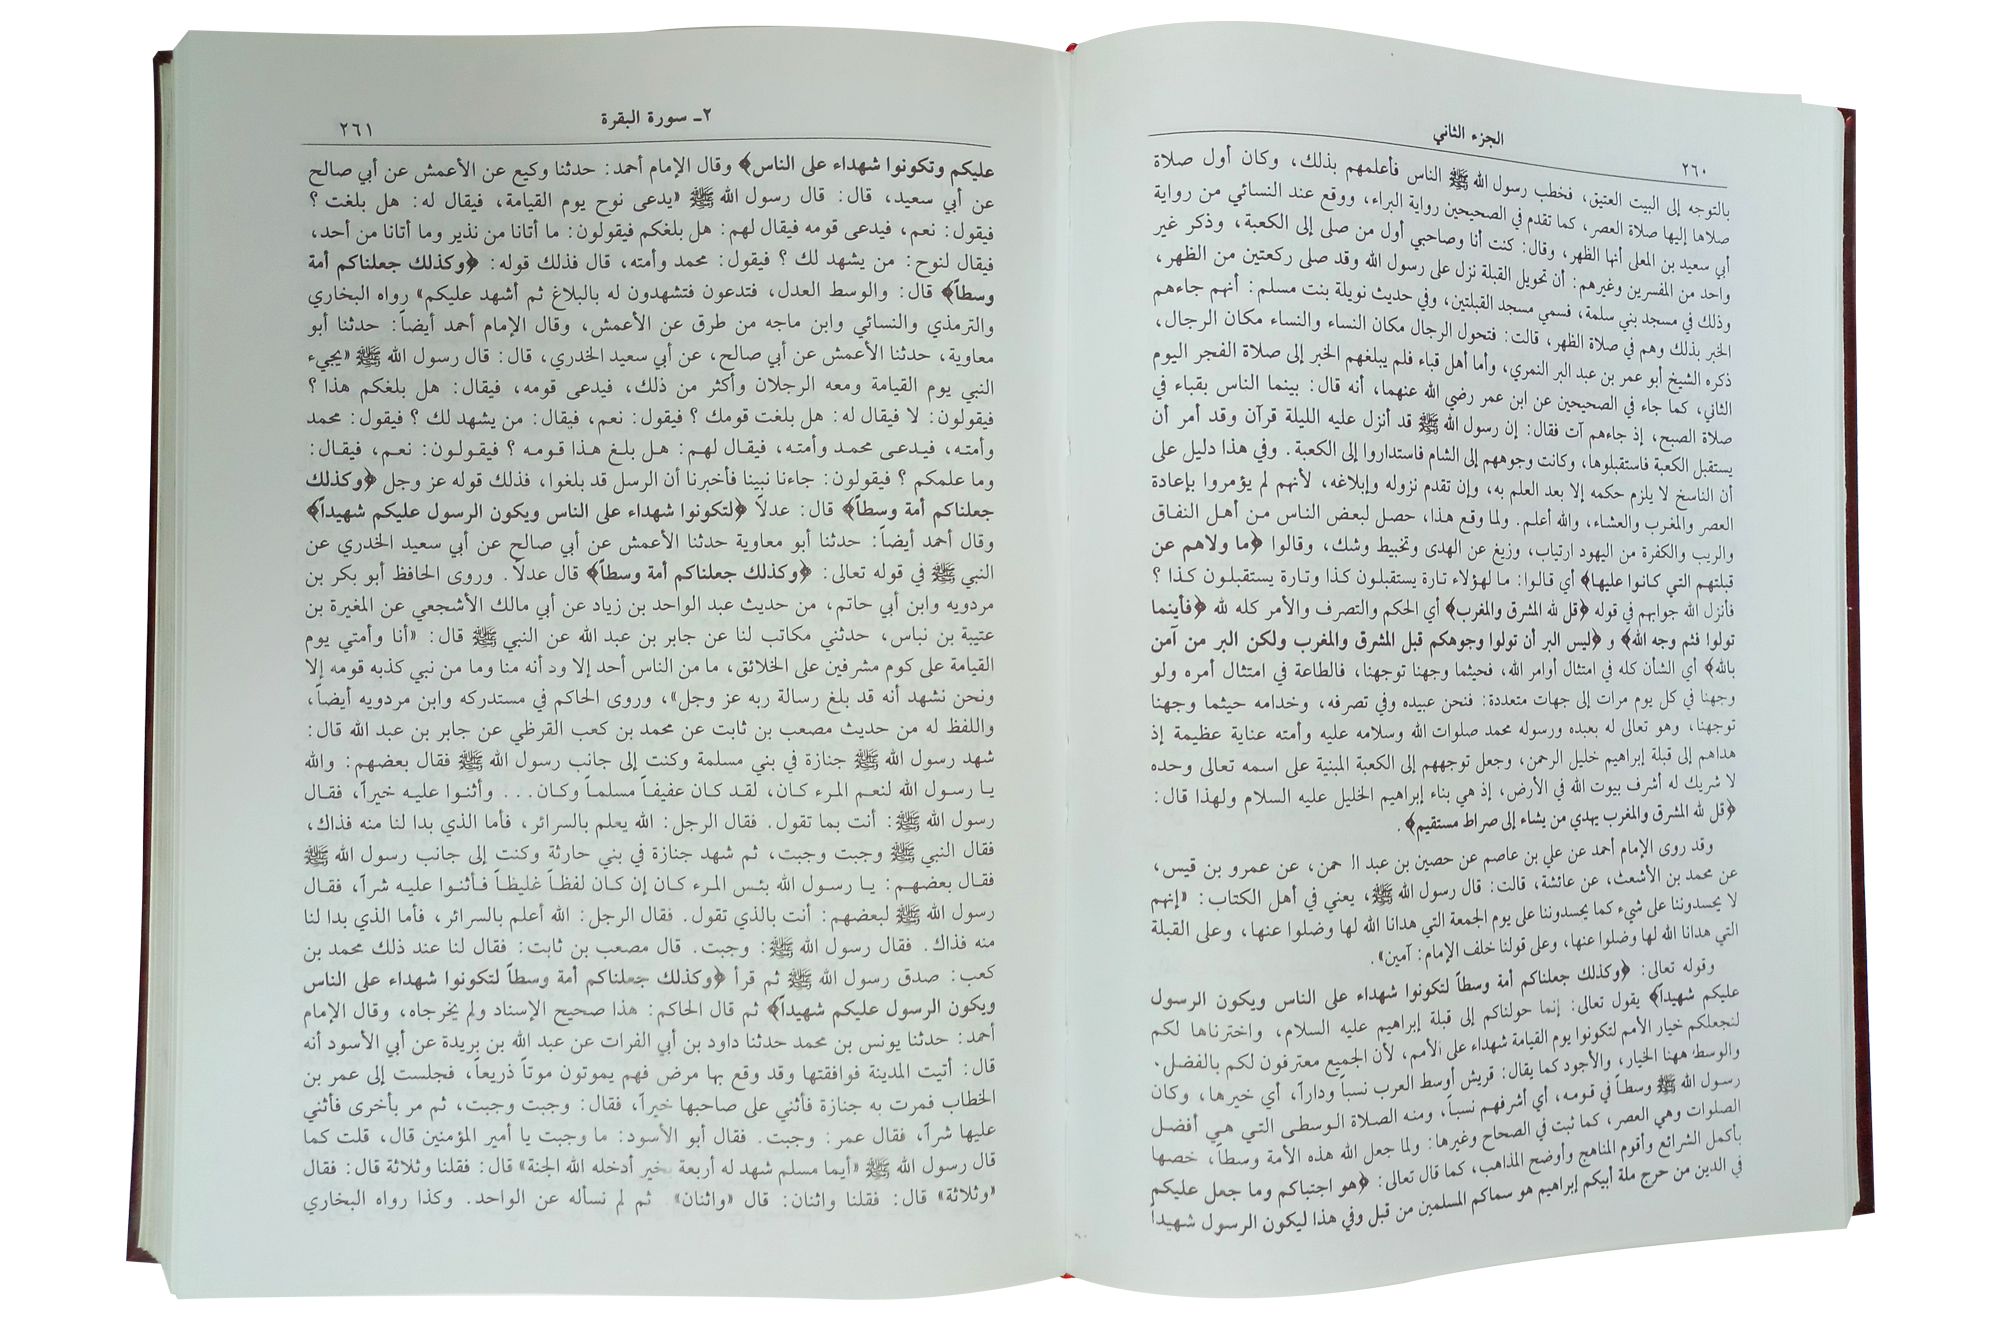 ٢٦٠
الجزء الثاني
بالتوجه إلى البيت العتيق، فخطب رسول الله ﷺ الناس فأعلمهم بذلك، وكان أول صلاة
صلاها إليها صلاة العصر، كما تقدم في الصحيحين رواية البراء، ووقع عند النسائي من رواية
أبي سعيد بن المعلى أنها الظهر، وقال: كنت أنا وصاحبي أول من صلى إلى الكعبة، وذكر غير
واحد من المفسرين وغيرهم: أن تحويل القبلة نزل على رسول الله وقد صلى ركعتين من الظهر،
وذلك في مسجد بني سلمة، فسمي مسجد القبلتين، وفي حديث نويلة بنت مسلم: أنهم جاءهم
الخبر بذلك وهم في صلاة الظهر، قالت: فتحول الرجال مكان النساء والنساء مكان الرجال،
ذكره الشيخ أبو عمر بن عبد البر النمري، وأما أهل قباء فلم يبلغهم الخبر إلى صلاة الفجر اليوم
الثاني، كما جاء في الصحيحين عن ابن عمر رضي الله عنهما، أنه قال: بينما الناس بقباء في
صلاة الصبح، إذ جاءهم آت فقال: إن رسول الله ﷺ قد أنزل عليه الليلة قرآن وقد أمر أن
يستقبل الكعبة فاستقبلوها، وكانت وجوههم إلى الشام فاستداروا إلى الكعبة. وفي هذا دليل على
أن الناسخ لا يلزم حكمه إلا بعد العلم به، وإن تقدم نزوله وإبلاغه، لأنهم لم يؤمروا بإعادة
العصر والمغرب والعشاء، والله أعلم. ولما وقع هذا، حصل لبعض الناس من أهل النفاق
والريب والكفرة من اليهود ارتياب، وزيغ عن الهدى وتخبيط وشك، وقالوا ﴿ما ولاهم عن
قبلتهم التي كانوا عليها﴾ أي قالوا: ما لهؤلاء تارة يستقبلون كذا وتارة يستقبلون كذا ؟
فأنزل الله جوابهم في قوله ﴿قل لله المشرق والمغرب﴾ أي الحكم والتصرف والأمر كله لله ﴿فأينما
تولوا فثم وجه الله﴾ و ﴿ليس البر أن تولوا وجوهكم قبل المشرق والمغرب ولكن البر من آمن
بالله﴾ أي الشأن كله في امتثال أوامر الله، فحيثما وجهنا توجهنا، فالطاعة في امتثال أمره ولو
وجهنا في كل يوم مرات إلى جهات متعددة: فنحن عبيده وفي تصرفه، وخدامه حيثما وجهنا
توجهنا، وهو تعالى له بعبده ورسوله محمد صلوات الله وسلامه عليه وأمته عناية عظيمة إذ
هداهم إلى قبلة إبراهيم خليل الرحمن، وجعل توجههم إلى الكعبة المبنية على اسمه تعالى وحده
لا شريك له أشرف بيوت الله في الأرض، إذ هي بناء إبراهيم الخليل عليه السلام ولهذا قال:
﴿قل لله المشرق والمغرب يهدي من يشاء إلى صراط مستقيم﴾.
وقد روى الإمام أحمد عن علي بن عاصم عن حصين بن عبد الرحمن، عن عمرو بن قيس،
عن محمد بن الأشعث، عن عائشة، قالت: قال رسول الله ﷺ، يعني في أهل الكتاب: «إنهم
لا يحسدوننا على شيء كما يحسدوننا على يوم الجمعة التي هدانا الله لها وضلوا عنها، وعلى القبلة
التي هدانا الله لها وضلوا عنها، وعلى قولنا خلف الإمام: آمين».
وقوله تعالى: ﴿وكذلك جعلناكم أمة وسطاً لتكونوا شهداء على الناس ويكون الرسول
عليكم شهيداً﴾ يقول تعالى: إنما حولناكم إلى قبلة إبراهيم عليه السلام، واخترناها لكم
لنجعلكم خيار الأمم لتكونوا يوم القيامة شهداء على الأمم، لأن الجميع معترفون لكم بالفضل.
والوسط ههنا الخيار، والأجود كما يقال: قريش أوسط العرب نسباً وداراً، أي خيرها، وكان
رسول الله ﷺ وسطاً في قومه، أي أشرفهم نسباً، ومنه الصلاة الوسطى التي هي أفضل
الصلوات وهي العصر، كما ثبت في الصحاح وغيرها: ولما جعل الله هذه الأمة وسطاً، خصها
بأكمل الشرائع وأقوم المناهج وأوضح المذاهب، كما قال تعالى: ﴿هو اجتباكم وما جعل عليكم
في الدين من حرج ملة أبيكم إبراهيم هو سماكم المسلمين من قبل وفي هذا ليكون الرسول شهيداً
٢ـ سورة البقرة
٢٦١
عليكم وتكونوا شهداء على الناس﴾ وقال الإمام أحمد: حدثنا وكيع عن الأعمش عن أبي صالح
عن أبي سعيد، قال: قال رسول الله ﷺ «يدعى نوح يوم القيامة، فيقال له: هل بلغت ؟
فيقول: نعم، فيدعى قومه فيقال لهم: هل بلغكم فيقولون: ما أتانا من نذير وما أتانا من أحد،
فيقال لنوح: من يشهد لك ؟ فيقول: محمد وأمته، قال فذلك قوله: ﴿وكذلك جعلناكم أمة
وسطاً﴾ قال: والوسط العدل، فتدعون فتشهدون له بالبلاغ ثم أشهد عليكم» رواه البخاري
والترمذي والنسائي وابن ماجه من طرق عن الأعمش، وقال الإمام أحمد أيضاً: حدثنا أبو
معاوية، حدثنا الأعمش عن أبي صالح، عن أبي سعيد الخدري، قال: قال رسول الله ﷺ «يجيء
النبي يوم القيامة ومعه الرجلان وأكثر من ذلك، فيدعى قومه، فيقال: هل بلغكم هذا ؟
فيقولون: لا فيقال له: هل بلغت قومك ؟ فيقول: نعم، فيقال: من يشهد لك ؟ فيقول: محمد
وأمته، فيدعى محمد وأمته، فيقال لهم: هل بلغ هذا قومه ؟ فيقولون: نعم، فيقال:
وما علمكم ؟ فيقولون: جاءنا نبينا فأخبرنا أن الرسل قد بلغوا، فذلك قوله عز وجل ﴿وكذلك
جعلناكم أمة وسطاً﴾ قال: عدلاً ﴿لتكونوا شهداء على الناس ويكون الرسول عليكم شهيداً﴾
وقال أحمد أيضاً: حدثنا أبو معاوية حدثنا الأعمش عن أبي صالح عن أبي سعيد الخدري عن
النبي ﷺ في قوله تعالى: ﴿وكذلك جعلناكم أمة وسطاً﴾ قال عدلاً. وروى الحافظ أبو بكر بن
مردويه وابن أبي حاتم، من حديث عبد الواحد بن زياد عن أبي مالك الأشجعي عن المغيرة بن
عتيبة بن نباس، حدثني مكاتب لنا عن جابر بن عبد الله عن النبي ﷺ قال: «أنا وأمتي يوم
القيامة على كوم مشرفين على الخلائق، ما من الناس أحد إلا ود أنه منا وما من نبي كذبه قومه إلا
ونحن نشهد أنه قد بلغ رسالة ربه عز وجل»، وروى الحاكم في مستدركه وابن مردويه أيضاً،
واللفظ له من حديث مصعب بن ثابت عن محمد بن كعب القرظي عن جابر بن عبد الله قال:
شهد رسول الله ﷺ جنازة في بني مسلمة وكنت إلى جانب رسول الله ﷺ فقال بعضهم: والله
يا رسول الله لنعم المرء كان، لقد كان عفيفاً مسلماً وكان... وأثنوا عليه خيراً، فقال
رسول الله ﷺ: أنت بما تقول. فقال الرجل: الله يعلم بالسرائر، فأما الذي بدا لنا منه فذاك،
فقال النبي ﷺ وجبت وجبت، ثم شهد جنازة في بني حارثة وكنت إلى جانب رسول الله ﷺ
فقال بعضهم: يا رسول الله بئس المرء كان إن كان لفظاً غليظاً فأثنوا عليه شراً، فقال
رسول الله ﷺ لبعضهم: أنت بالذي تقول. فقال الرجل: الله أعلم بالسرائر، فأما الذي بدا لنا
منه فذاك. فقال رسول الله ﷺ: وجبت. قال مصعب بن ثابت: فقال لنا عند ذلك محمد بن
كعب: صدق رسول الله ﷺ ثم قرأ ﴿وكذلك جعلناكم أمة وسطاً لتكونوا شهداء على الناس
ويكون الرسول عليكم شهيداً﴾ ثم قال الحاكم: هذا صحيح الإسناد ولم يخرجاه، وقال الإمام
أحمد: حدثنا يونس بن محمد حدثنا داود بن أبي الفرات عن عبد الله بن بريدة عن أبي الأسود أنه
قال: أتيت المدينة فوافقتها وقد وقع بها مرض فهم يموتون موتاً ذريعاً، فجلست إلى عمر بن
الخطاب فمرت به جنازة فأثني على صاحبها خيراً، فقال: وجبت وجبت، ثم مر بأخرى فأثني
عليها شراً، فقال عمر: وجبت. فقال أبو الأسود: ما وجبت يا أمير المؤمنين قال، قلت كما
قال رسول الله ﷺ «أيما مسلم شهد له أربعة بخير أدخله الله الجنة» قال: فقلنا وثلاثة قال: فقال
«وثلاثة» قال: فقلنا واثنان: قال «واثنان». ثم لم نسأله عن الواحد. وكذا رواه البخاري